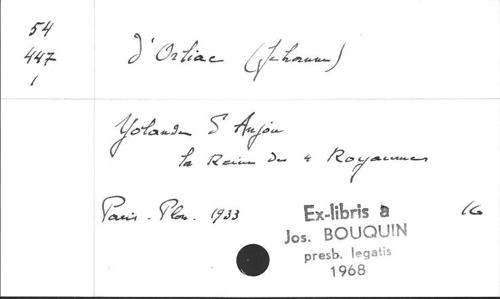 54
447
1
d'Orliac (Jehanne)
Yolande d'Anjou
la Reine des 4 Royaumes
Paris - Plon. 1933
16
Ex-libris a
Jos. BOUQUIN
presb. legatis
1968